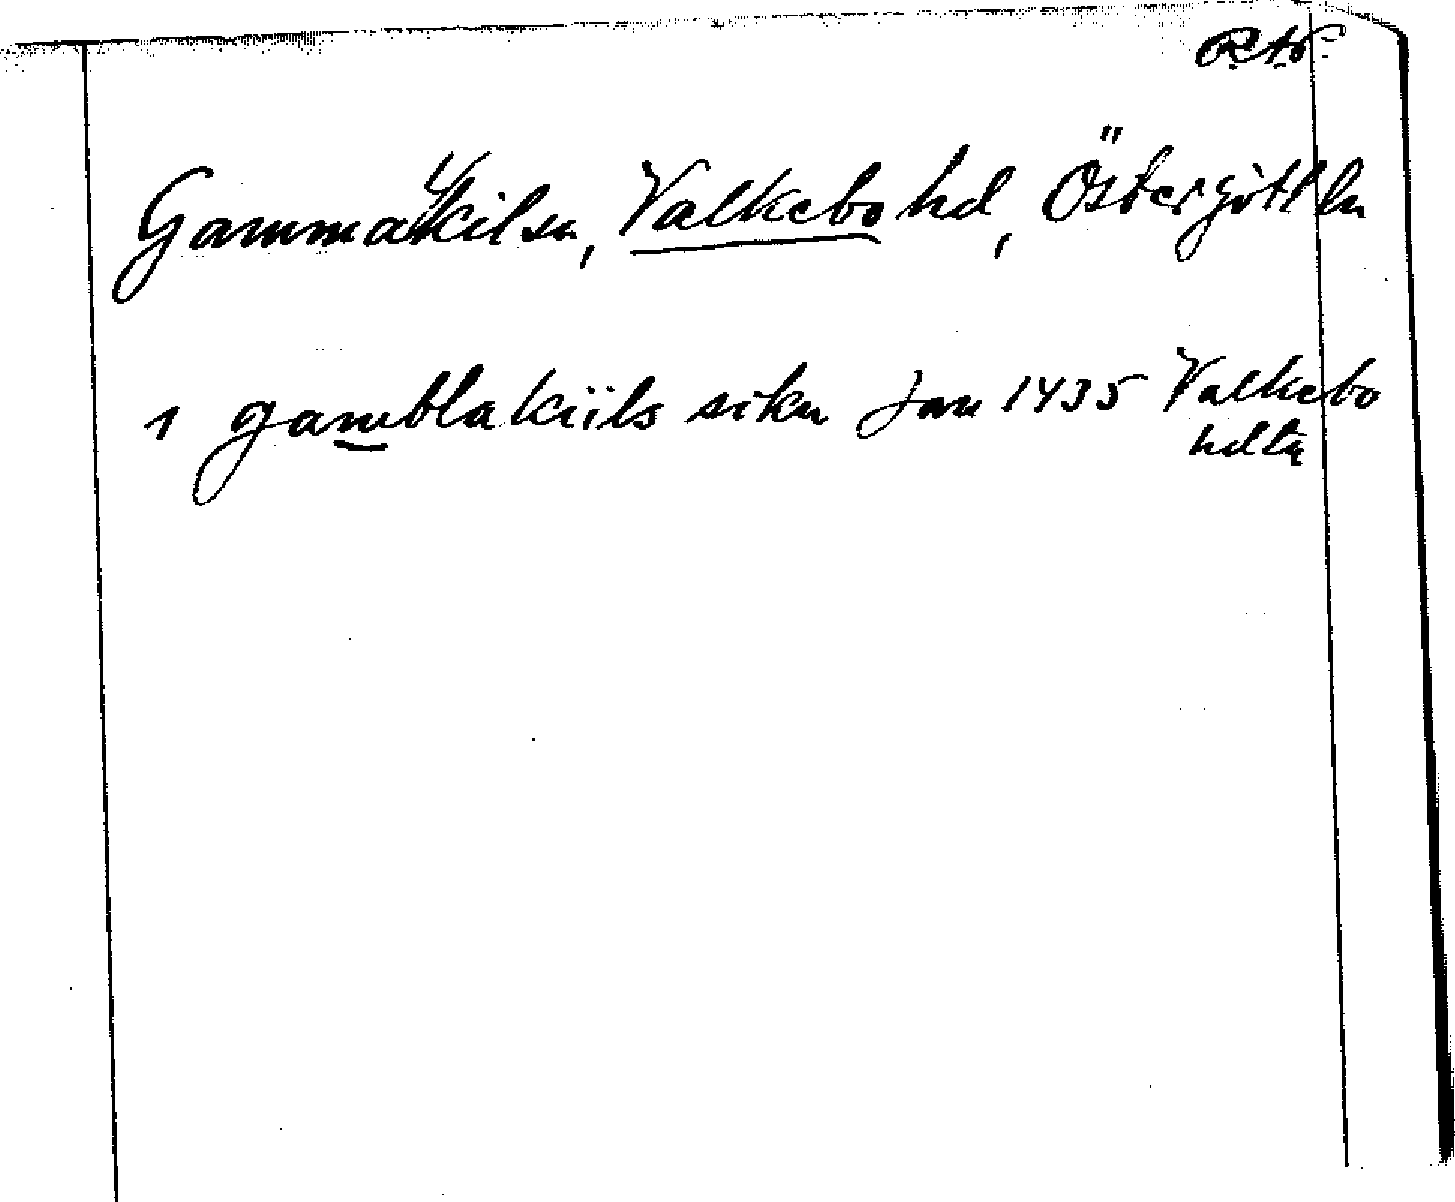 Gammalkil sn, Valkebo hd, Östergötl ln
1 gamblakiils sikn Jan 1435 Valkebo
hdtg